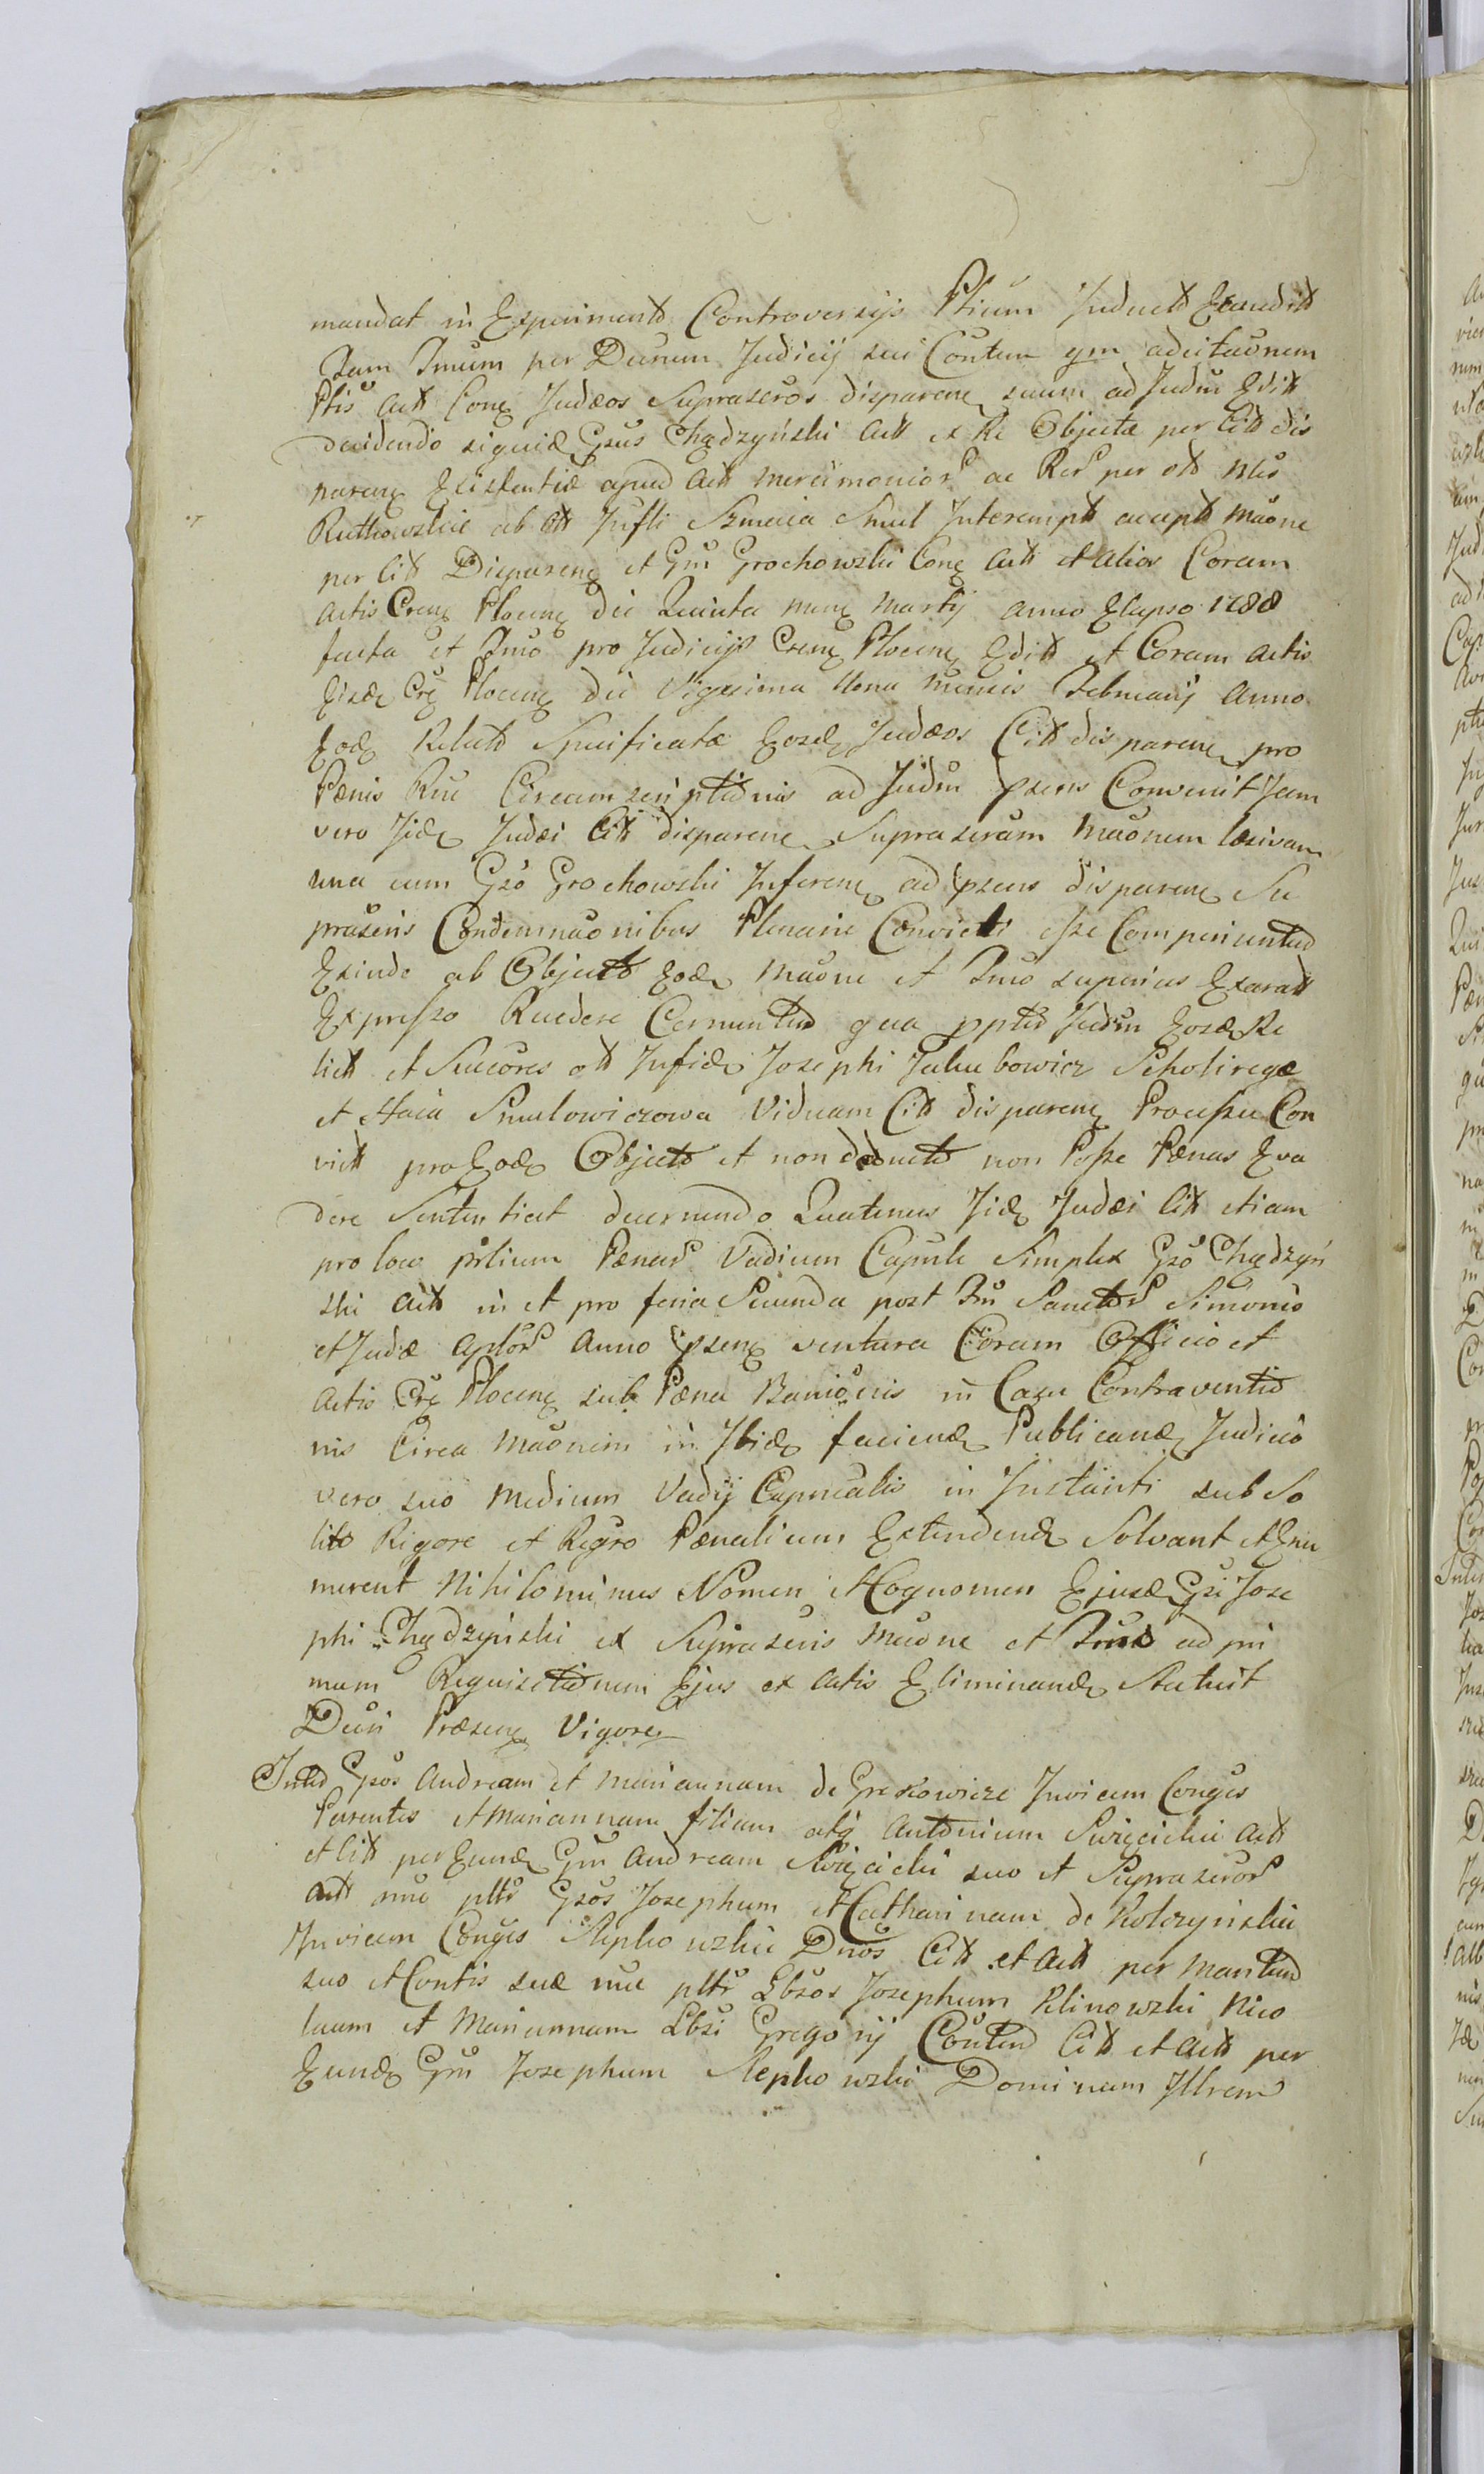 mandat in Experiments Controversijs Ptium Inducts Exaudits
Quam Dnuum per Decrum Judicij sui Contum grn adcitaonem
Ptis Act Cong Judæos Suprascros disparen suum ad Judm Edit
decidendo siquid Gsus Chądzyński Act ex Re Objecta per Cit dis
paren Existentiæ apud Act mercimonior ac Rer per ott Nles
Rutkowskie ab Ott Infli Szmeia Smul Interempt accept Maone
per Cit Disparen et Grn Grochowski Cong Act et alios Coram
Actis Cren Plocen die Quinta men Martij Anno Elapso 1788
facta et Dnuo pro Judicijs Cren Plocen Edit et Coram Actis
Eisd Cre Plocen die Vigesima Nona Mensis Februarij Anno
Eod Relato Specificatæ Eosd Judæos Cit disparen pro
Pænis Rne Circumscriptionis ad Judm psens Convenit Jam
vero Iid Judæi Cit disparen Suprascram Maonem læsivam
una cum Gso Grochowski Inferen ad psens disparen Su
prascris Condemnaonibus Plenarie Convicti esse Comperiuntur
Exinde ab Objecto Eod Maone et Dnuo superius Exarato
Expresso Recedere Cernuntur qua pptr Judm Eosd Re
lict et Succores ott Infid Josephi Jakubowicz Scholiregæ
et Haia Smulowiczowa Viduam Cit disparen Processu Con
vict pro Eod Objecto et non deducto non Posse Pænas Eva
dere Sententiat decernendo Quatenus Iid Judæi Cit etiam
pro loco ptlium Pænar Vadium Capnle Simplex Gso Chądzyń
ski Act in et pro feria Secunda post Fm Sanctor Simonis
et Judæ Aplor Anno psen ventura Coram Officio et
Actis Cre Plocen sub Pæna Banionis in Casu Contraventio
nis Circa Maonem in Ibid faciend Publicand Judicio
vero suo Medium Vadij Capnealis in Instanti sub So
lito Rigore et Regro Pænalium Extendend Solvant et Enu
merent Nihilominus Nomen et Cognomen Ejusd Gsi Jose
phi Chądzyński ex Suprascris Maone et Dnuo ad pri
mam Requisitionem Ejus ex Actis Eliminand Statuit
Decri Præsen Vigore
Inter Gsos Andream et Mariannam de Grekowicze Invicem Conges
Parentes et Mariannam filiam atq Antonium Święcickie Act
et Cit per Eund Grn Andream Święcicki suo et Suprascror
Act nne pltr Gsos Josephum et Catharinam de Kolczyńskie
Invicem Conges Stepkowskie Dnos Cit et Act per Maritum
suo et Contis suæ nne pltr Lbsos Josephum Klinowski Nico
laum et Mariannam Lbsi Gregorij Contem Cit et Act per
Eund Grn Josephum Stepkowski Dominum Illrem